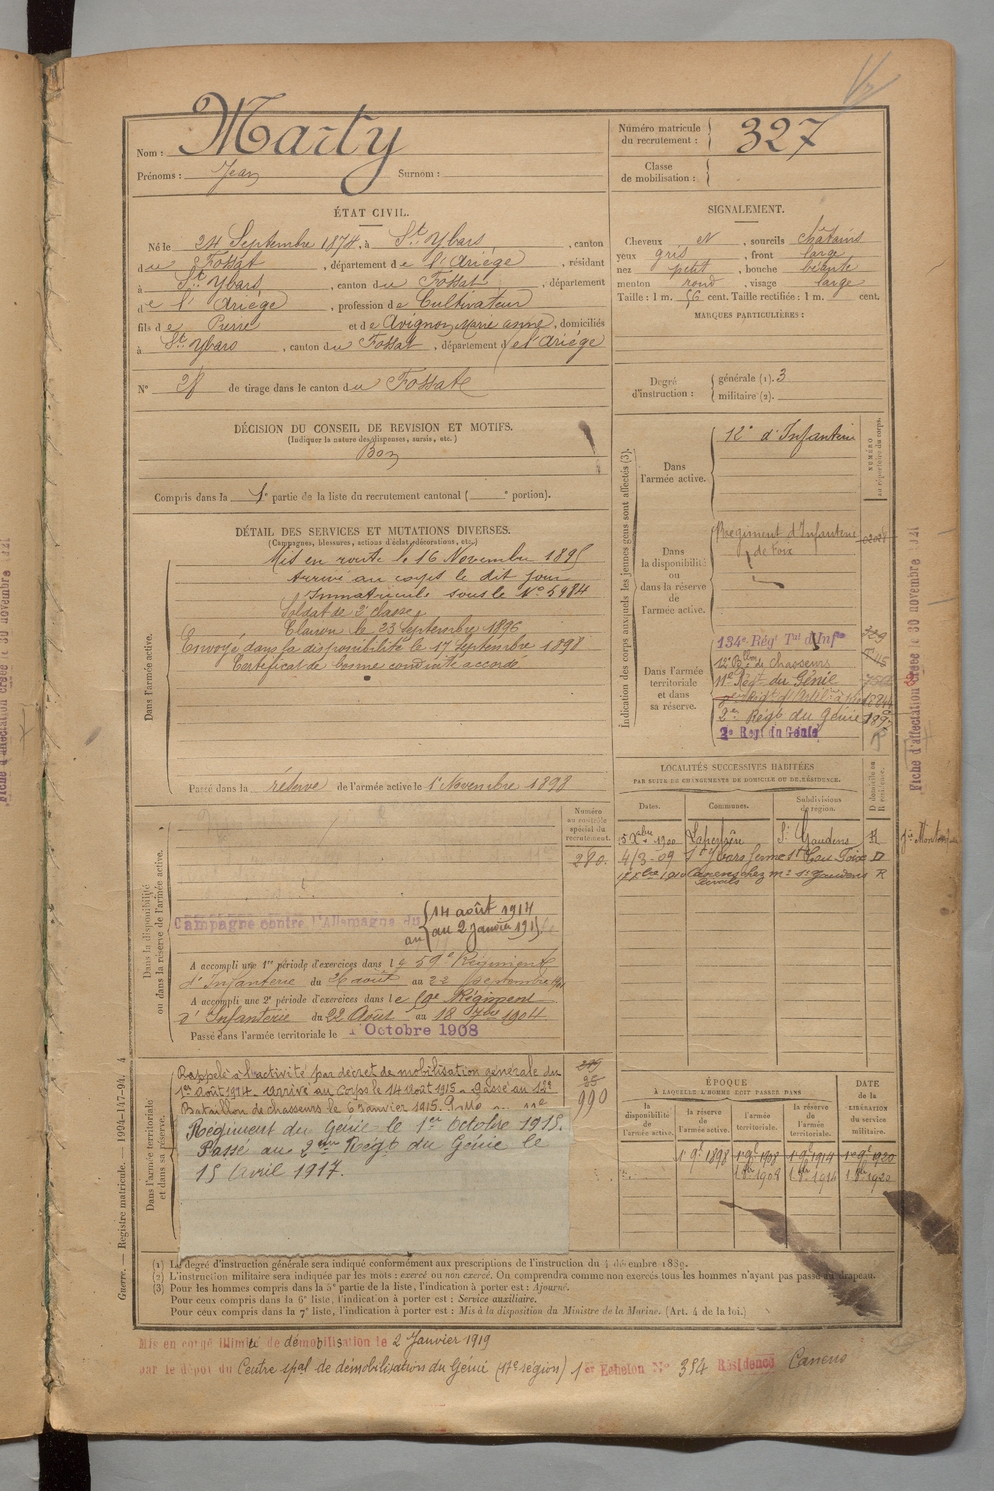 Nom : Marty
Prénoms : Jean Surnom :
Numéro matricule du recrutement : 327
Classe de mobilisation :
ÉTAT CIVIL.
Né le 24 Septembre 1874, à St Ybars, canton
du Fossat, département de l'Ariège, résidant
à St Ybars, canton du Fossat, département
de l'Ariège, profession de Cultivateur
fils de Pierre et de Avignon Marie anne, domiciliés
à St Ybars, canton du Fossat, département de l'Ariège
N° de tirage dans le canton du Fossat
DÉCISION DU CONSEIL DE REVISION ET MOTIFS.
(Indiquer la nature des dispenses, sursis, etc.)
Bon
Compris dans la 1e partie de la liste du recrutement cantonal ( e portion).
SIGNALEMENT.
Cheveux et, sourcils châtains
yeux gris, front large
nez petit, bouche béante
menton rond, visage large
Taille : 1 m. 56 cent. Taille rectifiée : 1 m. cent.
MARQUES PARTICULIÈRES :
Degré d'instruction : générale (1). 3
militaire (2).
DÉTAIL DES SERVICES ET MUTATIONS DIVERSES.
(Campagnes, blessures, actions d'éclat, décorations, etc.)
Dans l'armée active.
Mis en route le 16 Novembre 1895
Arrivé au corps le dit jour
Immatriculé sous le N° 5984
Soldat de 2e classe
Clairon le 23 Septembre 1896
Envoyé dans la disponibilité le 17 Septembre 1898
Certificat de bonne conduite accordé
Passé dans la réserve de l'armée active le 1er Novembre 1898
Indication des corps auxquels les jeunes gens sont affectés (3).
NUMÉRO au répertoire du corps.
Dans l'armée active.
12e d'Infanterie
Dans la disponibilité ou dans la réserve de l'armée active.
Régiment d'Infanterie
de Foix
Dans l'armée territoriale et dans sa réserve.
134e Régt Tal d'Infie
12e Bon de chasseurs
11e Régt du Génie
2e Régt du Génie
2e Regt du Génie
LOCALITÉS SUCCESSIVES HABITÉES
PAR SUITE DE CHANGEMENTS DE DOMICILE OU DE RÉSIDENCE.
Dates. Communes. Subdivisions de région. D domicile ou R résidence.
5 Xbre 1900 St Gaudens R
4/3-09 St Ybars Foix D
St Gaudens R
Dans la disponibilité ou dans la réserve de l'armée active.
Numéro au contrôle spécial du recrutement.
280.
Campagne contre l'Allemagne du 14 août 1914
au 2 janvier 191
A accompli une 1re période d'exercices dans le 59e Régiment
d'Infanterie du 26 août au 22 septembre
A accompli une 2e période d'exercices dans le Régiment
d'Infanterie du 22 Août au 18 7bre 1904
Passé dans l'armée territoriale le 1 Octobre 1908
Dans l'armée territoriale et dans sa réserve.
Rappelé à l'activité par décret de mobilisation générale du
1er août 1914. Arrivé au Corps le 14 août 1915. Passé au 12e
Bataillon de chasseurs le 6 janvier 1915.
Régiment du Génie le 1er Octobre 1915.
Passé au 2ème Régt du Génie le
15 Avril 1917.
990
ÉPOQUE
À LAQUELLE L'HOMME DOIT PASSER DANS
la disponibilité de l'armée active. la réserve de l'armée active. l'armée territoriale. la réserve de l'armée territoriale.
DATE de la LIBÉRATION du service militaire.
1er 9bre 1898 1er 9bre 1908 1er 9bre 1914 1er 9bre 1920
1 8bre 1908 1 8bre 1914 1 8bre 1920
(1) Le degré d'instruction générale sera indiqué conformément aux prescriptions de l'instruction du 4 décembre 1889.
(2) L'instruction militaire sera indiquée par les mots : exercé ou non exercé. On comprendra comme non exercés tous les hommes n'ayant pas passé au drapeau.
(3) Pour les hommes compris dans la 5e partie de la liste, l'indication à porter est : Ajourné.
Pour ceux compris dans la 6e liste, l'indication à porter est : Service auxiliaire.
Pour ceux compris dans la 7e liste, l'indication à porter est : Mis à la disposition du Ministre de la Marine. (Art. 4 de la loi.)
Mis en congé illimité de démobilisation le 2 Janvier 1919
par le dépôt du Centre spal de démobilisation du Génie (17e région) 1er Echelon N° 354 Résidence
Guerre. — Registre matricule. — 1994-147-94. 4
Fiche d'affectation créée le 30 novembre 1921